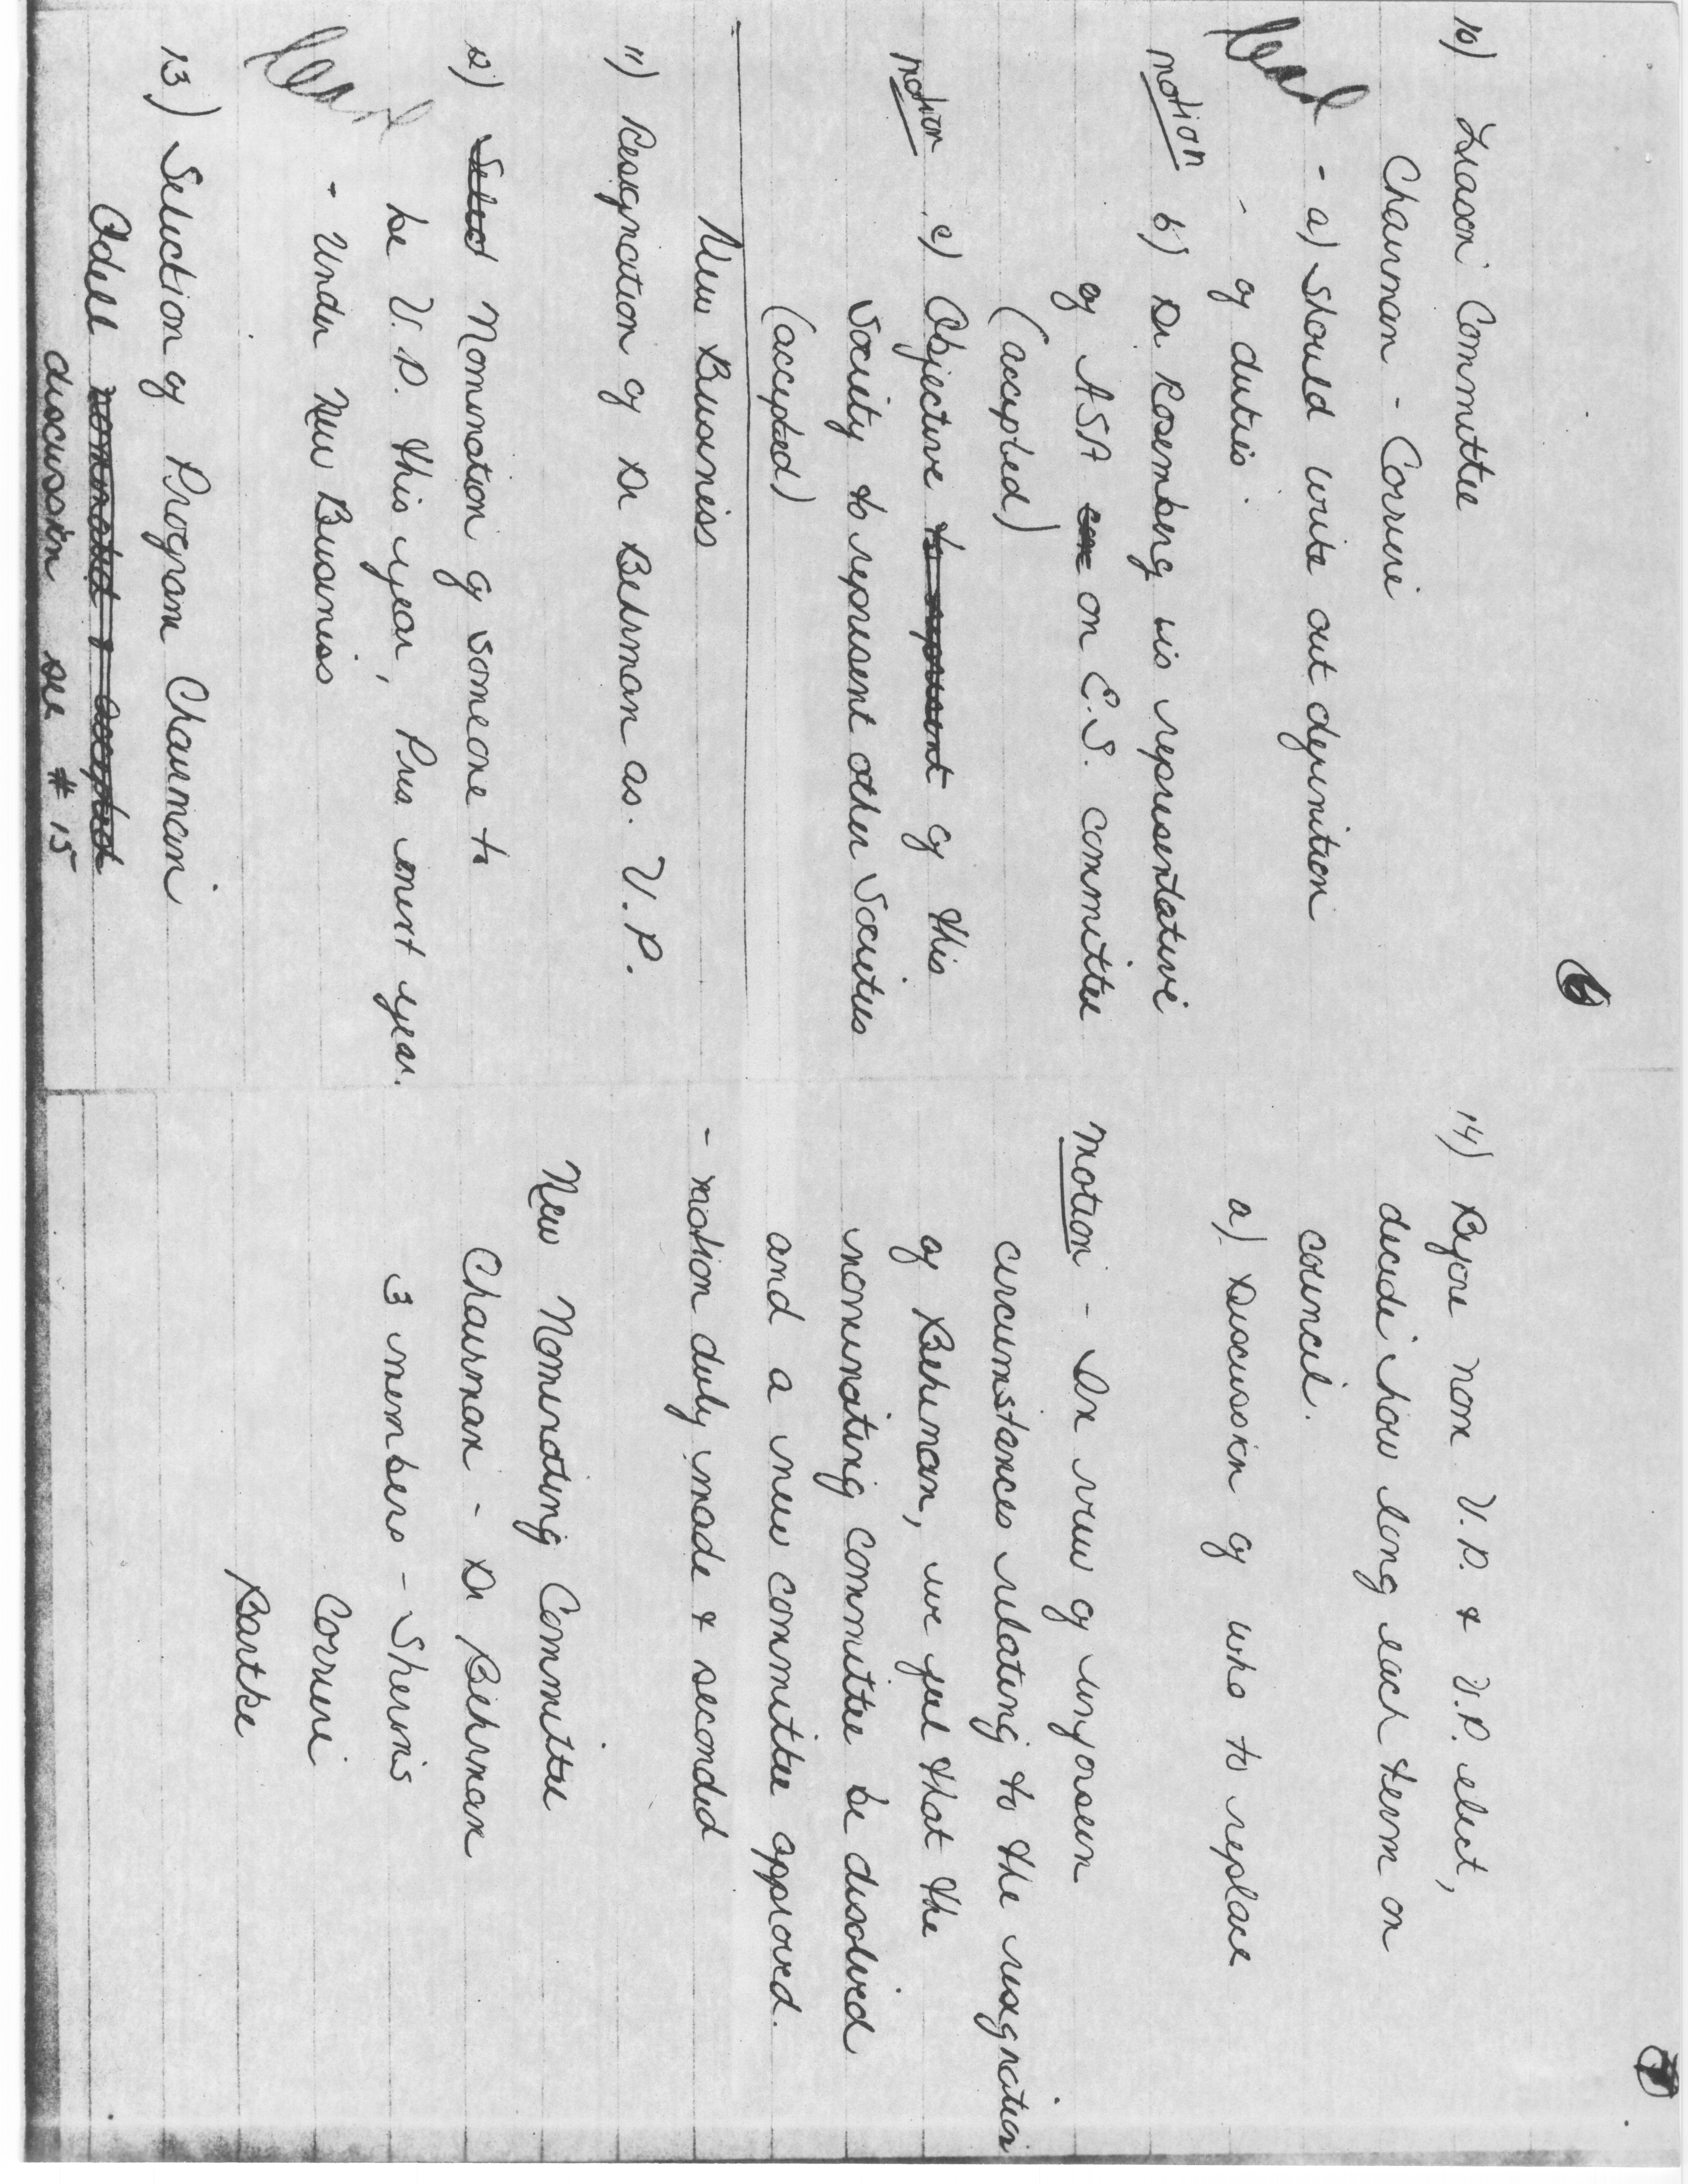 6
10) Liason Committee
Chairman - Corrine
- a) Should write out definition
- of duties.
motion b) Dr Rosenberg is representative
of ASA on E.S. committee
(accepted)
motion c) Objective to represent of this
Society to represent other Societies
(accepted)
New Business
11) Resignation of Dr Behrman as V.P.
12) Select Nomination of someone to
be V.P. this year, Pres next year.
- Under New Business
13) Selection of Program Chairman
Odell nominated & accepted
discussion see #15
7
14) Before nom V.P. & V.P. elect,
decide how long each term on
council.
a) Discussion of who to replace
Motion - In view of unforseen
circumstances relating to the resignation
of Behrman, we feel that the
nominating committee be disolved
and a new committee approved.
- motion duly made & seconded
New Nominating Committee
Chairman - Dr Behrman
3 members - Sherris
Corrine
Bartke